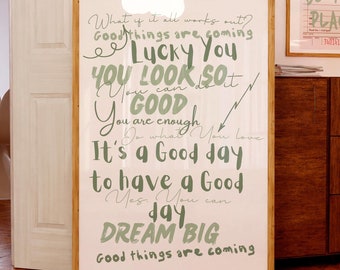 What if it all works out?
Good things are coming
Lucky You
YOU LOOK SO
You can do it
GOOD
You are enough
Do what You love
It's a Good day
to have a Good
Yes, You can
day
DREAM BIG
Good things are coming
PLA